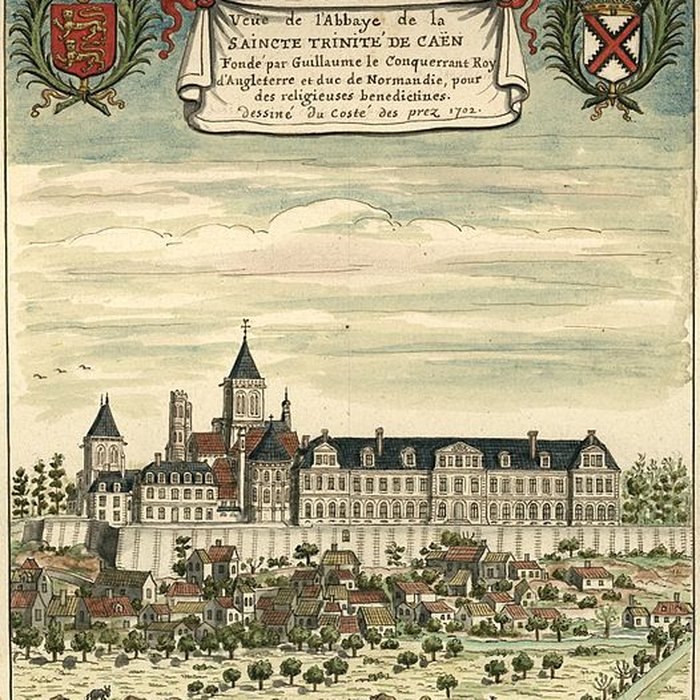 Veüe de l'Abbaye de la
SAINCTE TRINITÉ DE CAËN
Fondé par Guillaume le Conquerrant Roy
d'Angleterre et duc de Normandie, pour
des religieuses benedictines.
dessiné du Costé des prez 1702.